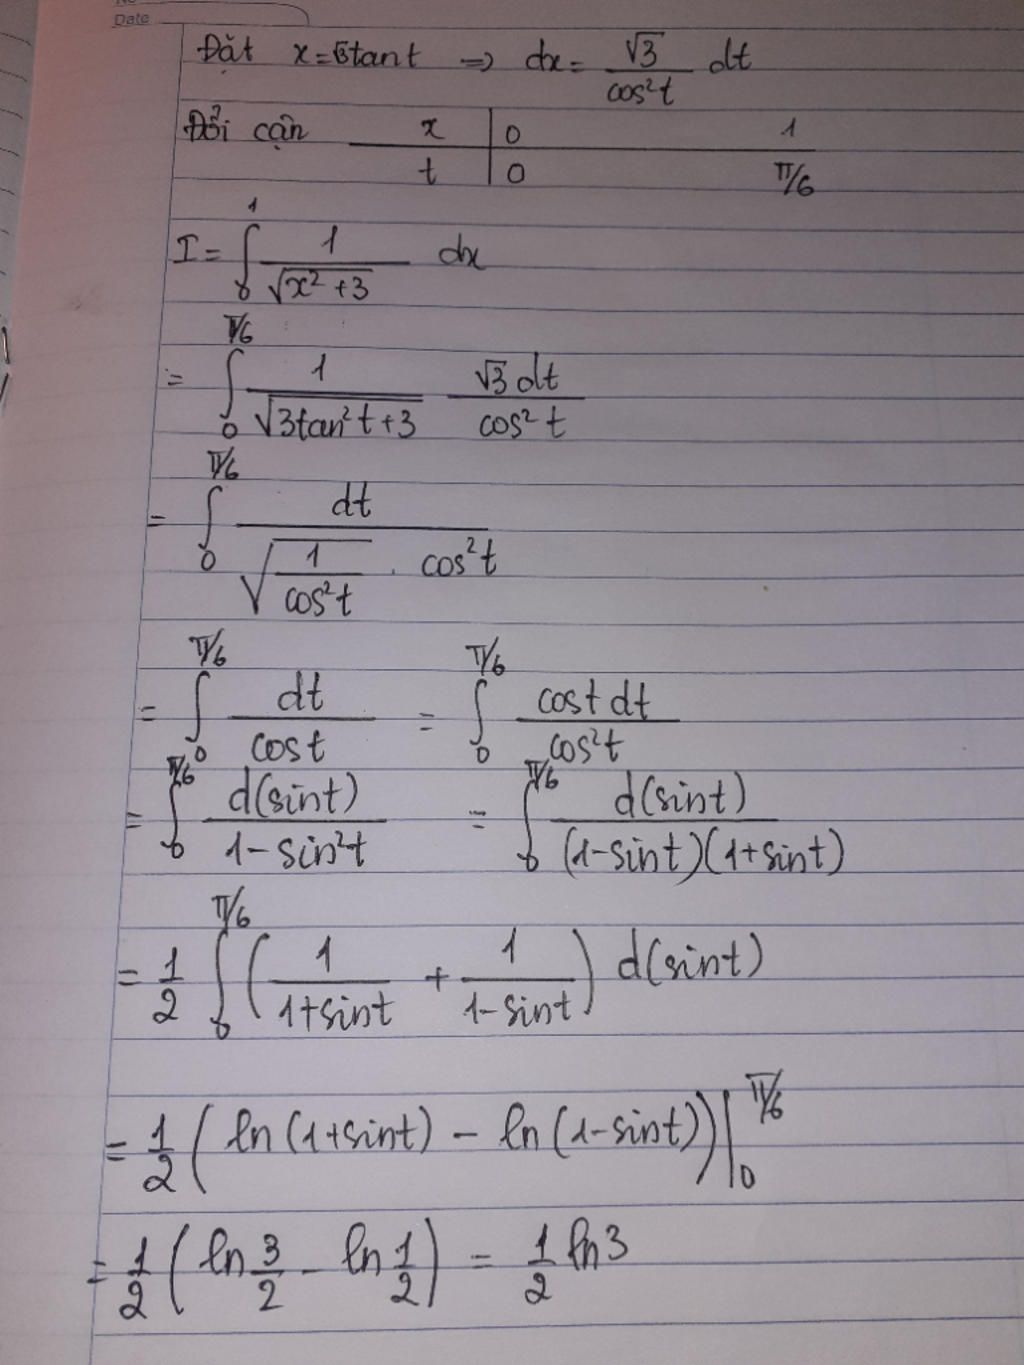 Date
Đặt x=√3tant => dx= √3/cos²t dt
Đổi cận x | 0 1
t | 0 π/6
I = ∫₀¹ 1/√(x²+3) dx
= ∫₀^(π/6) 1/√(3tan²t+3) √3dt/cos²t
= ∫₀^(π/6) dt/(√(1/cos²t) . cos²t)
= ∫₀^(π/6) dt/cost = ∫₀^(π/6) cost dt/cos²t
= ∫₀^(π/6) d(sint)/(1-sin²t) = ∫₀^(π/6) d(sint)/((1-sint)(1+sint))
= 1/2 ∫₀^(π/6) (1/(1+sint) + 1/(1-sint)) d(sint)
= 1/2 (ln(1+sint) - ln(1-sint))|₀^(π/6)
= 1/2 (ln 3/2 - ln 1/2) = 1/2 ln3